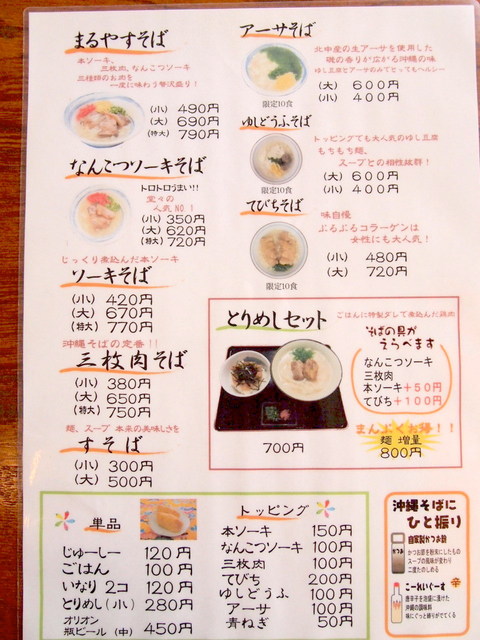 まるやすそば
本ソーキ、
三枚肉、なんこつソーキ
三種類のお肉を
一度に味わう贅沢盛り!
(小) 490円
(大) 690円
(特大) 790円
なんこつソーキそば
トロトロうまい!!
堂々の
人気NO.1
(小) 350円
(大) 620円
(特大) 720円
じっくり煮込んだ本ソーキ
ソーキそば
(小) 420円
(大) 670円
(特大) 770円
沖縄そばの定番!!
三枚肉そば
(小) 380円
(大) 650円
(特大) 750円
麺、スープ 本来の美味しさを
すそば
(小) 300円
(大) 500円
アーサそば
北中産の生アーサを使用した
磯の香りが広がる沖縄の味
ゆし豆腐とアーサのみでとってもヘルシー
(大) 600円
(小) 400円
限定10食
ゆしどうふそば
トッピングでも大人気のゆし豆腐
もちもち麺、
スープとの相性抜群!
(大) 600円
(小) 400円
限定10食
てびちそば
味自慢
ぷるぷるコラーゲンは
女性にも大人気!
(小) 480円
(大) 720円
限定10食
とりめしセット
ごはんに特製ダレで煮込んだ鶏肉
そばの具が
えらべます
なんこつソーキ
三枚肉
本ソーキ+50円
てびち+100円
700円
まんぷくお得!!
麺 増量
800円
単品
じゅーしー 120円
ごはん 100円
いなり 2コ 120円
とりめし(小) 280円
オリオン
瓶ビール (中) 450円
トッピング
本ソーキ 150円
なんこつソーキ 100円
三枚肉 100円
てびち 200円
ゆしどうふ 100円
アーサ 100円
青ねぎ 50円
沖縄そばに
ひと振り
自家製かつお粉
かつお節を粉末にしたもの
スープの風味が変わり
二度たのしめる
かつお
こーれーぐーす
唐辛子を泡盛に漬けた
沖縄の調味料
味にぐっと締りがでてくる